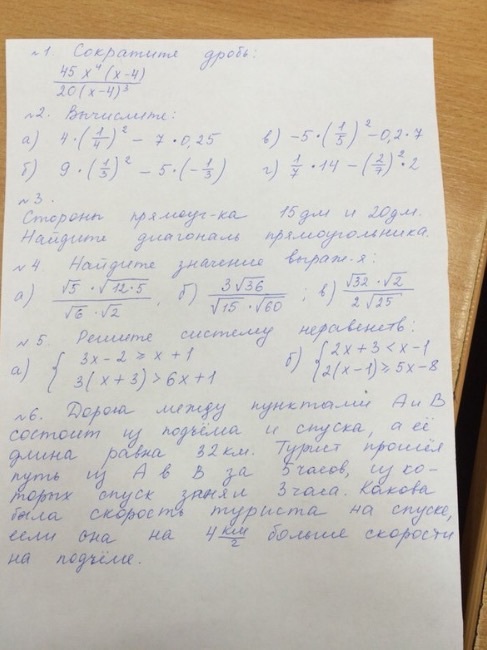 №1 Сократите дробь:
45 x⁴ (x-4)
20(x-4)³
№2. Вычислите:
а) 4·(1/4)² - 7·0,25
в) -5·(1/5)² - 0,2·7
б) 9·(1/3)² - 5·(-1/3)
г) 1/7·14 - (2/7)²·2
№3
Стороны прямоуг-ка 15дм и 20дм.
Найдите диагональ прямоугольника.
№4 Найдите значение выраж-я:
а) √5·√12·5 / √6·√2, б) 3√36 / √15·√60; в) √32·√2 / 2√25
№5. Решите систему неравенств:
а) { 3x-2 ≥ x+1
3(x+3)>6x+1
б) { 2x+3<x-1
2(x-1)≥5x-8
№6. Дорога между пунктами А и В
состоит из подъёма и спуска, а её
длина равна 32 км. Турист прошёл
путь из А в В за 5 часов, из ко-
торых спуск занял 3 часа. Какова
была скорость туриста на спуске,
если она на 4 км/ч больше скорости
на подъёме.